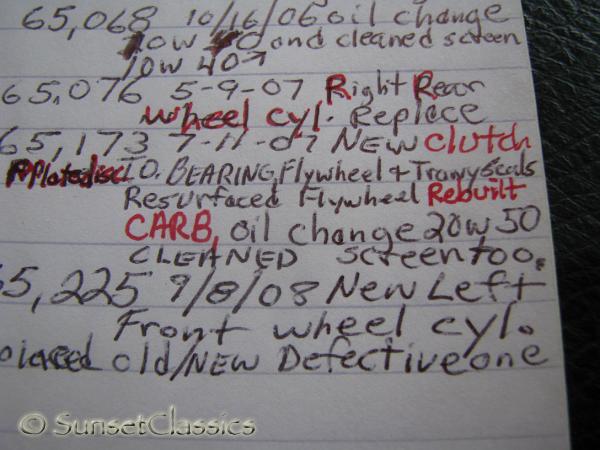 65,068 10/16/06 oil change
10w 40 and cleaned screen
10w 407
65,076 5-9-07 Right Rear
wheel cyl. Replace
65,173 7-11-07 NEW clutch
Platedisc T.O. BEARING, Flywheel + Tranyseals
Resurfaced Flywheel Rebuilt
CARB, oil change 20w50
CLEANED screen too.
65,225 9/8/08 New Left
Front wheel cyl.
old/NEW Defective one
© SunsetClassics